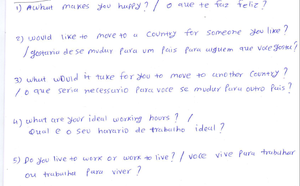 1) what makes you happy? / o que te faz feliz?
2) would like to move to a country for someone you like?
/ gostaria de se mudar para um país para alguem que voce gosta?
3) what would it take for you to move to another country?
/ o que seria necessario para voce se mudar para outro pais?
4) what are your ideal working hours? /
qual e o seu horario de trabalho ideal?
5) Do you live to work or work to live? / voce vive para trabalhar
ou trabalha para viver?